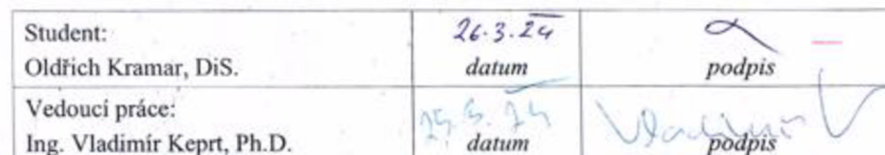 Student: 26.3.24
Oldřich Kramar, DiS. datum podpis
Vedoucí práce:
Ing. Vladimír Keprt, Ph.D. datum podpis